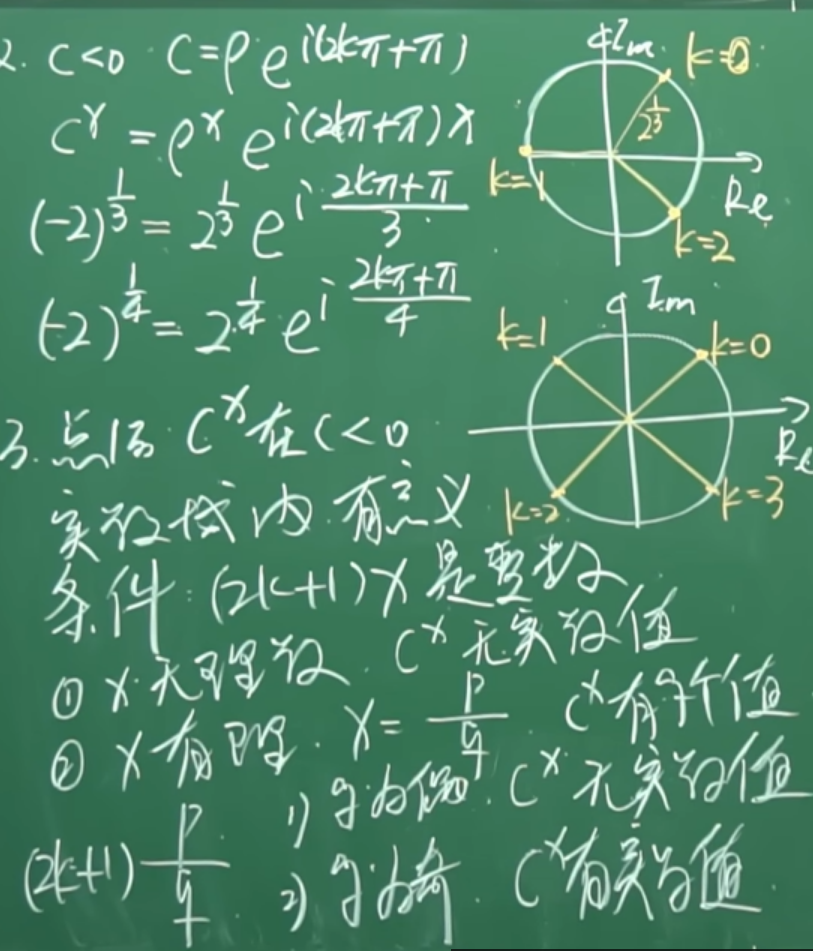 2. C<0 C=ρe^{i(2kπ+π)}
C^x = ρ^x e^{i(2kπ+π)x}
(-2)^{\frac{1}{3}} = 2^{\frac{1}{3}} e^{i\frac{2kπ+π}{3}}
(-2)^{\frac{1}{4}} = 2^{\frac{1}{4}} e^{i\frac{2kπ+π}{4}}
Im
k=0
2^{\frac{1}{3}}
k=1
Re
k=2
Im
k=1
k=0
Re
k=2
k=3
3. 点15 C^x在C<0
实数域内有意义
条件:(2k+1)x是整数
① x无理数. C^x无实数值
② x有理. x=\frac{p}{q} C^x有q个值
1) q为偶. C^x无实数值
(2k+1)\frac{p}{q}
2) q为奇 C^x有实数值.